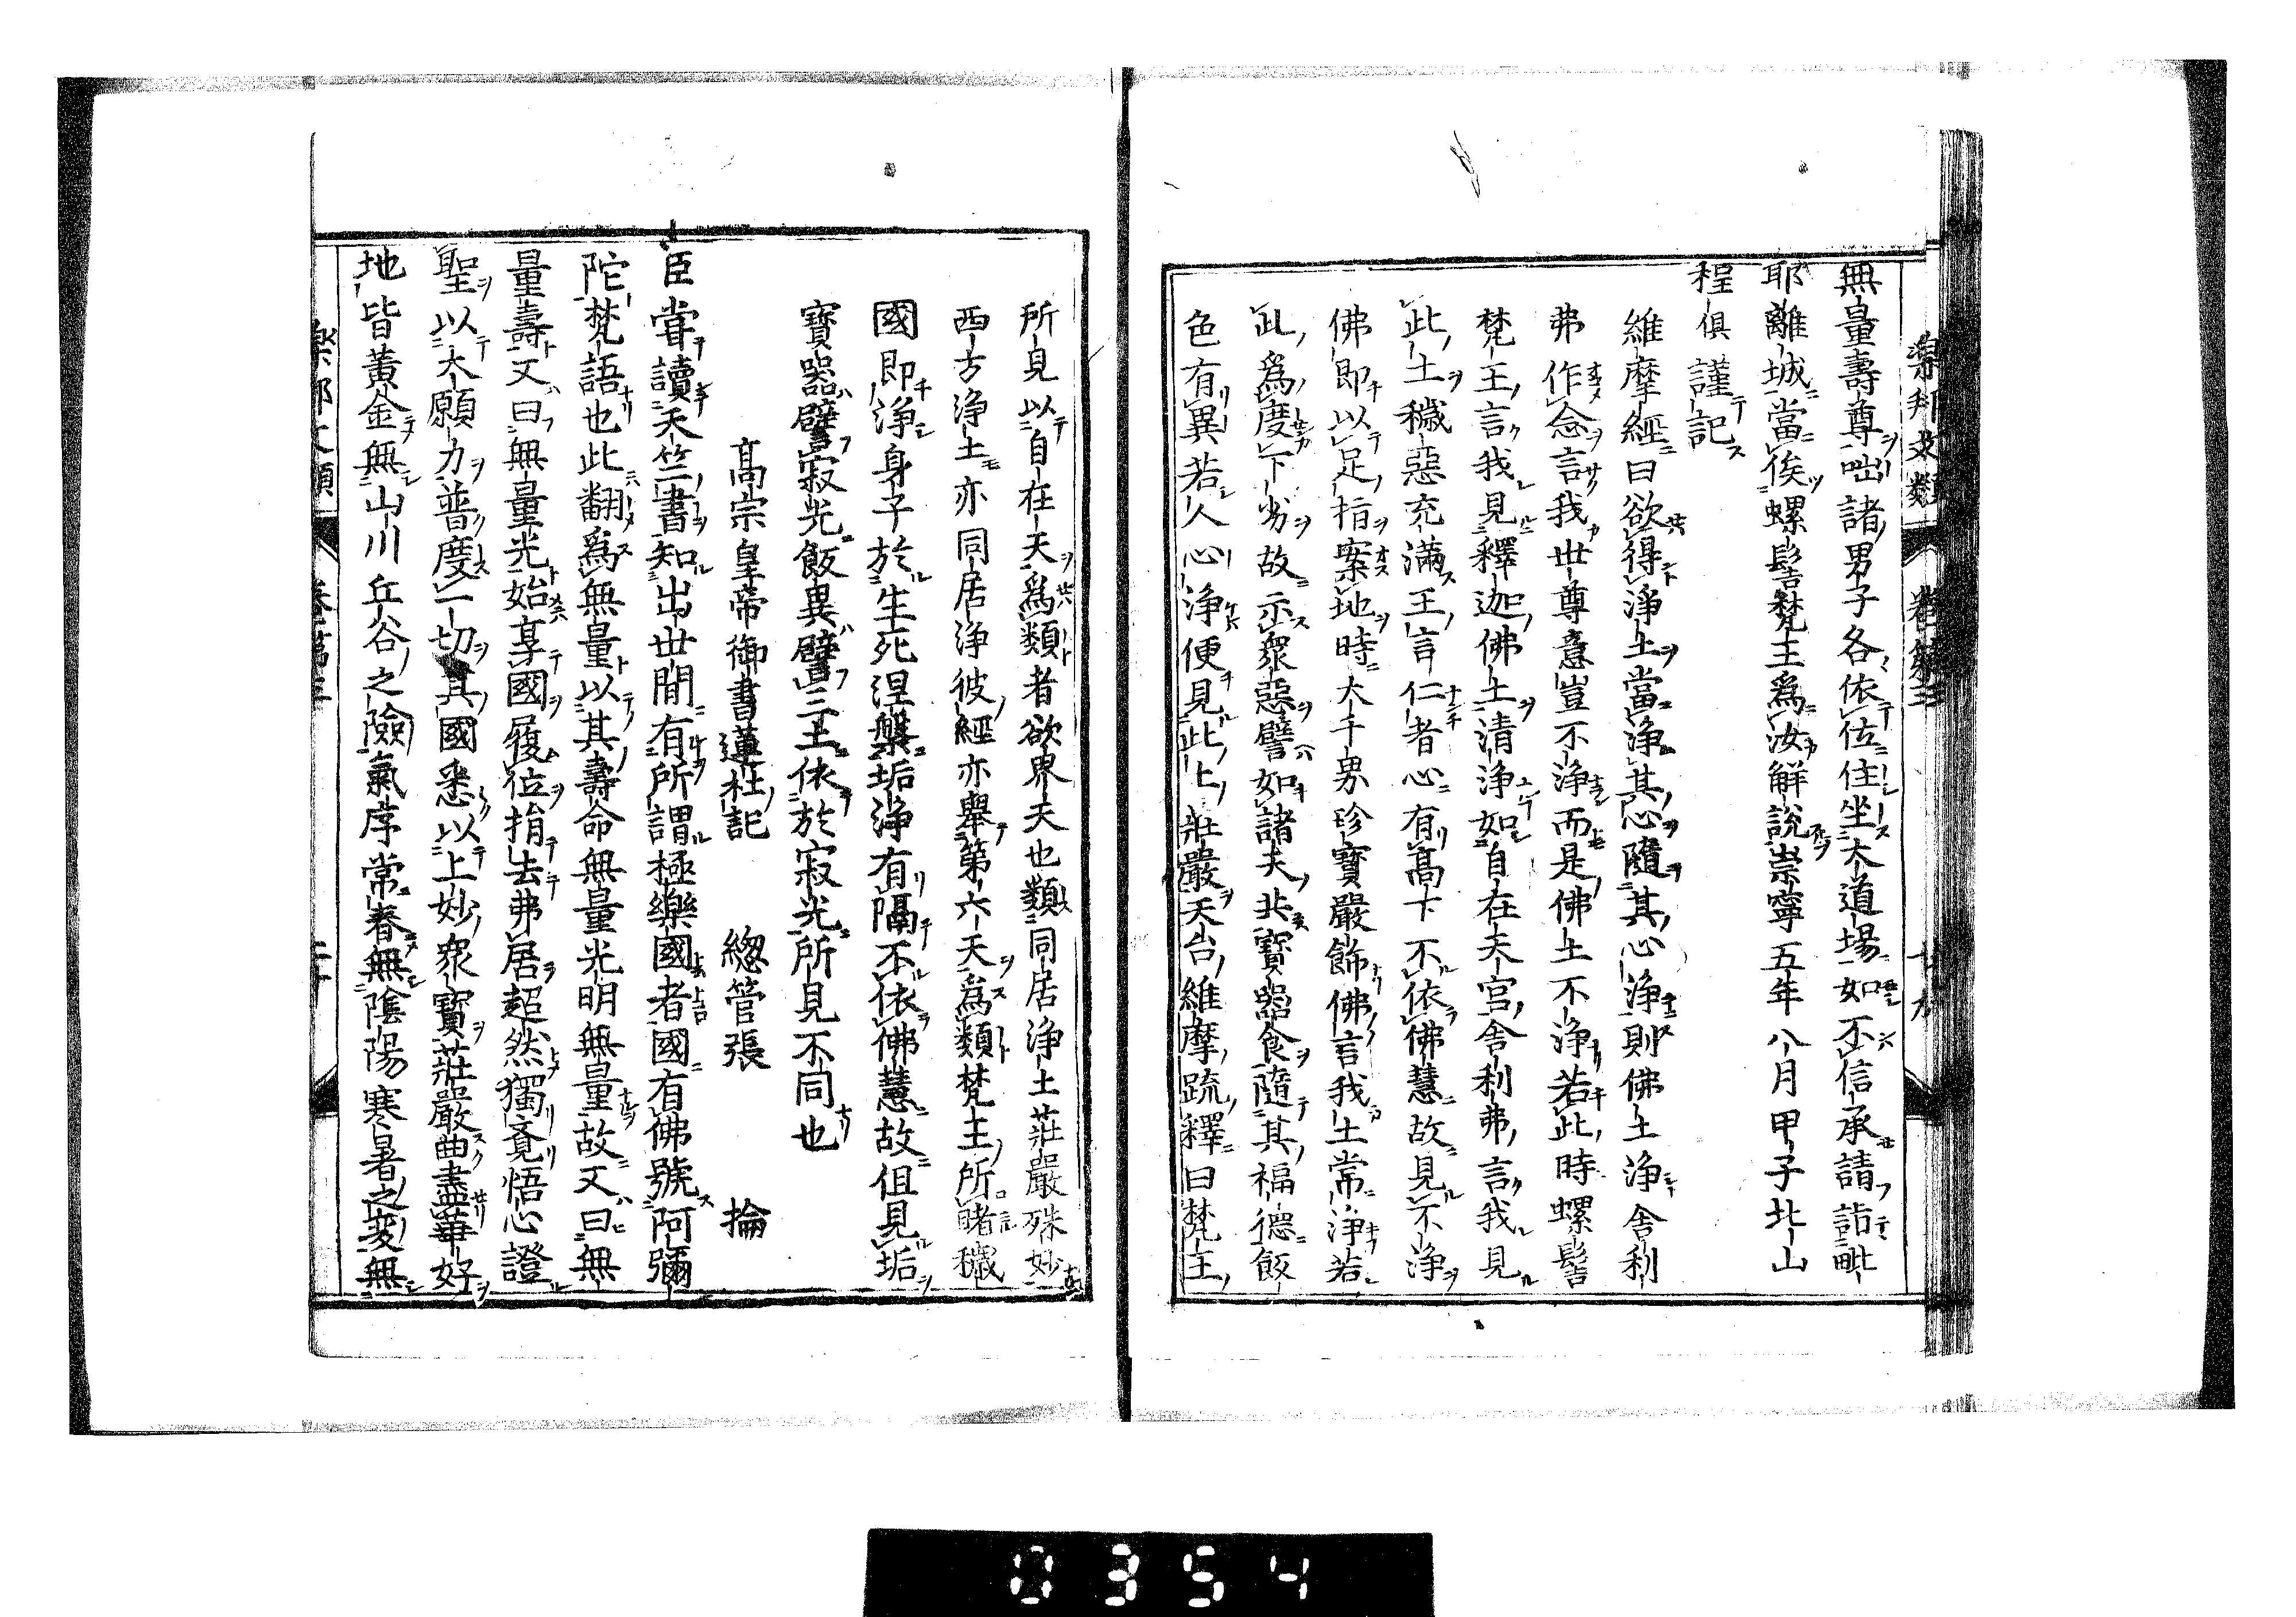 樂邦文類 卷第三 廿九
無量壽尊咄諸男子各依位住坐大道場如不信承請詣毗
耶離城當俟螺髻梵王爲汝解説崇寧五年八月甲子北山
程俱謹記
維摩經曰欲得淨土當淨其心隨其心淨則佛土淨舍利
弗作念言我世尊意豈不淨而是佛土不淨若此時螺髻
梵王言我見釋迦佛土清淨如自在天宮舍利弗言我見
此土穢惡充滿王言仁者心有髙下不依佛慧故見不淨
佛即以足指案地時大千界珍寶嚴飾佛言我土常淨若
此爲度下劣故示衆惡譬如諸天共寶器食隨其福德飯
色有異若人心淨便見此土莊嚴天台維摩疏釋曰梵王
所見以自在天爲類者欲界天也類同居淨土莊嚴殊妙
西方淨土亦同居淨彼經亦舉第六天爲類梵王所睹穢
國即淨身子於生死涅槃垢淨有隔不依佛慧故但見垢
寶器譬寂光飯異譬三土依於寂光所見不同也
髙宗皇帝御書蓮社記 緫管張 掄
臣甞讀天竺書知出世間有所謂極樂國者國有佛號阿彌
陀梵語也此翻爲無量以其壽命無量光明無量故又曰無
量壽又曰無量光始享國履位捐去弗居超然獨覺悟心證
聖以大願力普度一切其國悉以上妙衆寶莊嚴曲盡華好
地皆黄金無山川丘谷之險氣序常春無陰陽寒暑之変無
樂邦文類 卷第三
0354